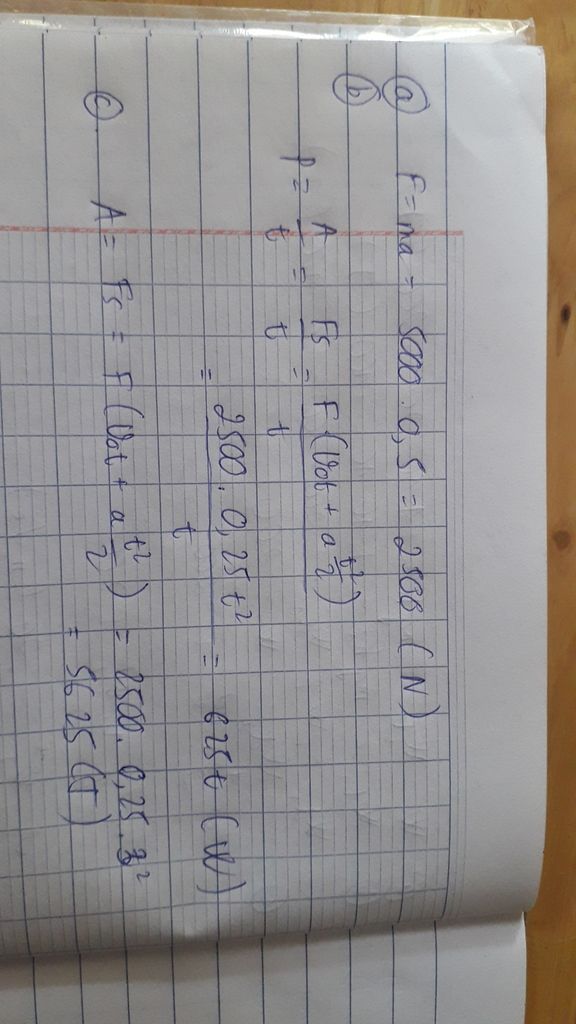 a F = ma = 5000 . 0,5 = 2500 (N)
b
P = A/t = Fs/t = F(v₀t + a t²/2)/t
= 2500 . 0,25t²/t = 625t (W)
c. A = Fs = F(v₀t + a t²/2) = 2500 . 0,25 . 3²
= 5625 (J)